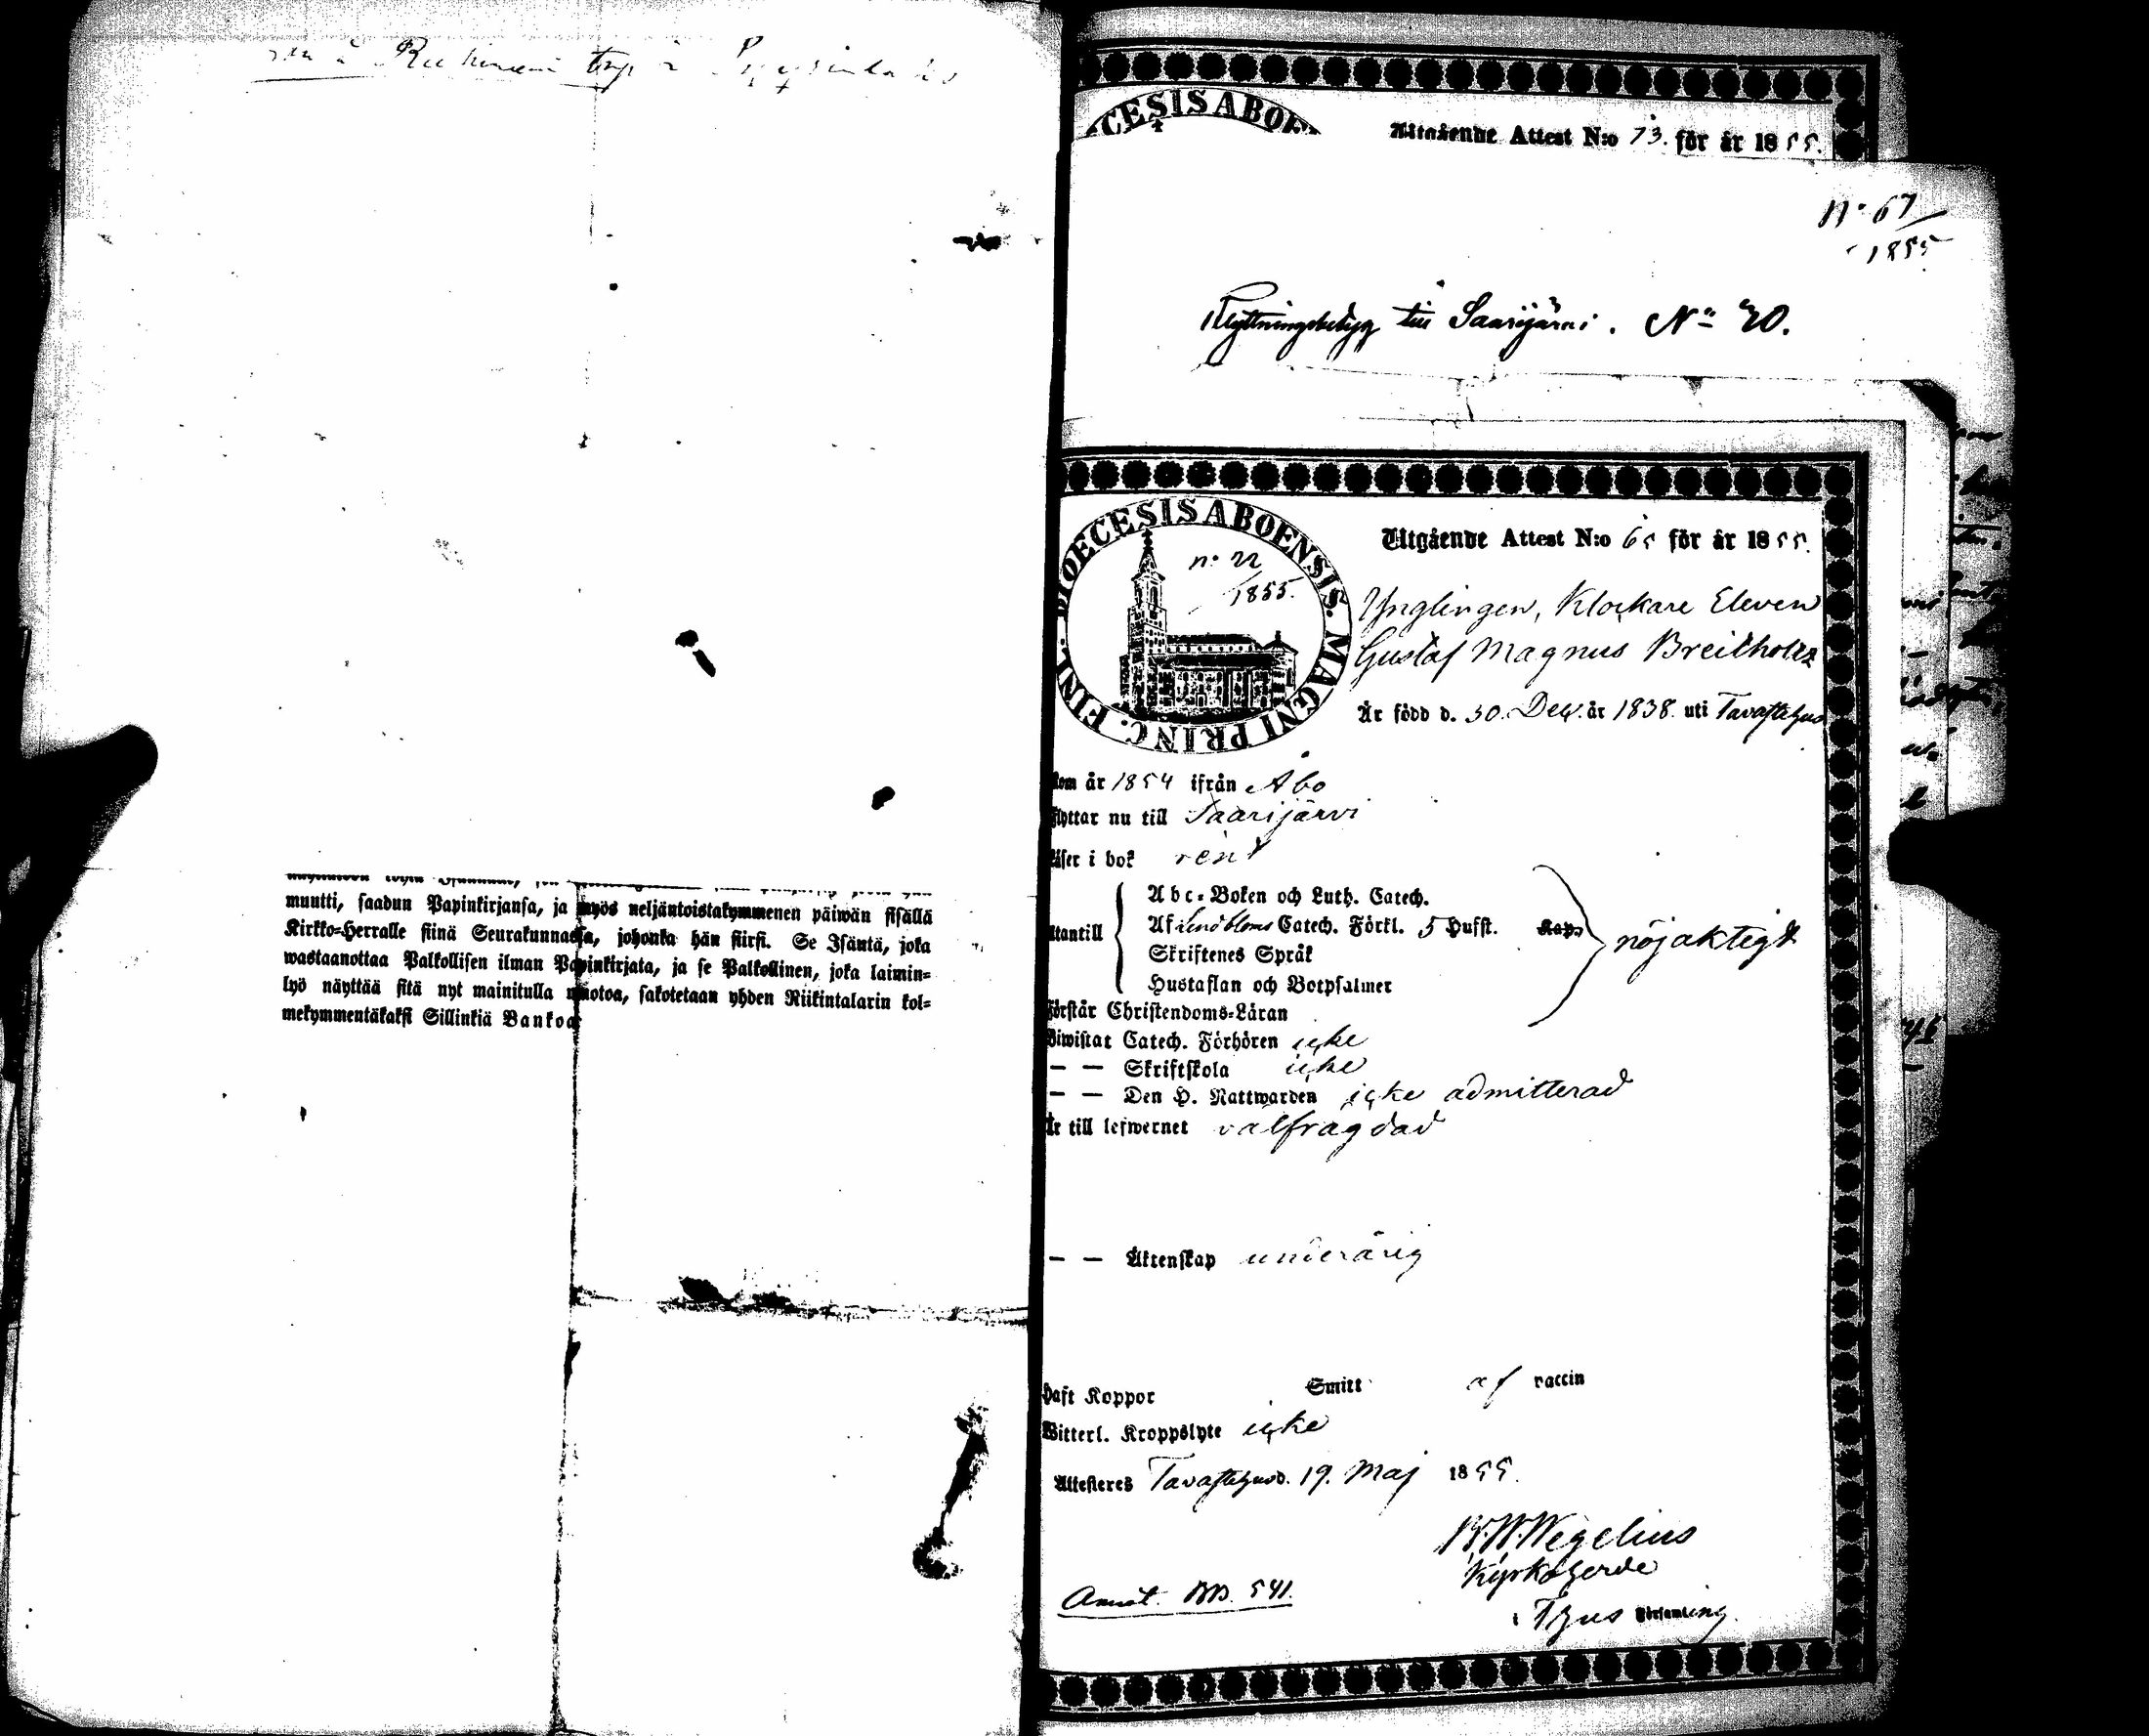 torp i
muutti, saadun Papinkirjansa, ja myös neljäntoistakymmenen päiwän sisällä
Kirkko-Herralle siinä Seurakunnassa, johonka hän siirsi. Se Isäntä, joka
wastaanottaa Palkollisen ilman Papinkirjata, ja se Palkollinen, joka laimin-
lyö näyttää sitä nyt mainitulla muotoa, sakotetaan yhden Riikintalarin kol-
mekymmentäkaksi Sillinkiä Bankos
CESIS ABOE
Utgående Attest N:o 73. för år 1855.
N:o 67/1855
Flyttningsbetyg till Saarijärvi. No 20.
DIOECESIS ABOENSIS. MAGNI PRINC. FINL.
n:o 22/1855.
Utgående Attest N:o 65 för år 1855.
Ynglingen, Klockare Eleven
Gustaf Magnus Breitholtz
Är född d. 30. Dec. år 1838. uti Tavastehus
Kom år 1854 ifrån Åbo
Flyttar nu till Saarijärvi
Läser i bok rent
Utantill
Abc-Boken och Luth. Catech.
Af Lindbloms Catech. Förkl. 5 Hufst. Kap.
Skriftenes Språk
Hustaflan och Botpsalmer
nöjaktigt
Förstår Christendoms-Läran
Biwistat Catech. Förhören icke
— — Skriftskola icke
— — Den H. Nattwarden icke admitterad
Är till lefwernet välfrägdad
— — Äktenskap underårig
Haft Koppor Smitt af vaccin
Witterl. Kroppslyte icke
Attesteres Tavastehus d. 19. Maj 1855.
Wegelius
Kyrkoherde
i T:hus Församling.
Annot. BB. 541.